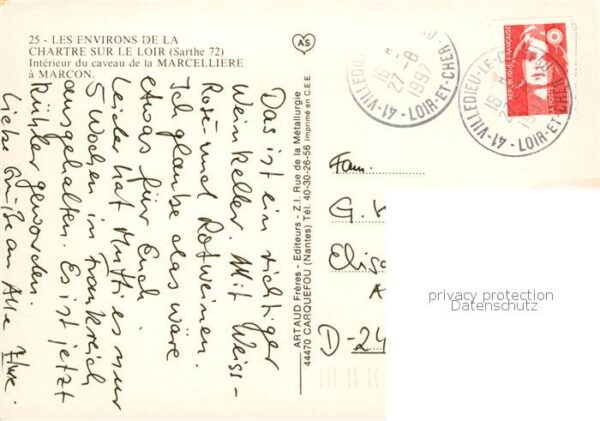 25 - LES ENVIRONS DE LA
CHARTRE SUR LE LOIR (Sarthe 72)
Intérieur du caveau de la MARCELLIERE
à MARCON.
AS
41-VILLEDIEU-LE-C
16 H
27-8
1997
LOIR-ET-CHER
41-VILLEDIEU-LE-C
16 H
LOIR-ET-CHER
REPUBLIQUE FRANÇAISE
LA POSTE
Das ist ein richtiger
Weinkeller. Mit Weiss-
Rosé und Rotweinen.
Ich glaube das wäre
etwas für Euch.
Leider hat Mutti es nur
5 Wochen in Frankreich
ausgehalten. Es ist jetzt
kühler geworden.
Liebe Grüße an Alle
ARTAUD Frères - Editeurs - Z.I. Rue de la Métallurgie
44470 CARQUEFOU (Nantes) Tél. 40-30-26-56 Imprimé en C.E.E.
Fam.
G.
Elisa
A
D-24
privacy protection
Datenschutz